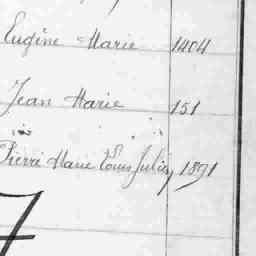 Eugène Marie 1404
Jean Marie 151
Pierre Marie Louis Julien 1891
7